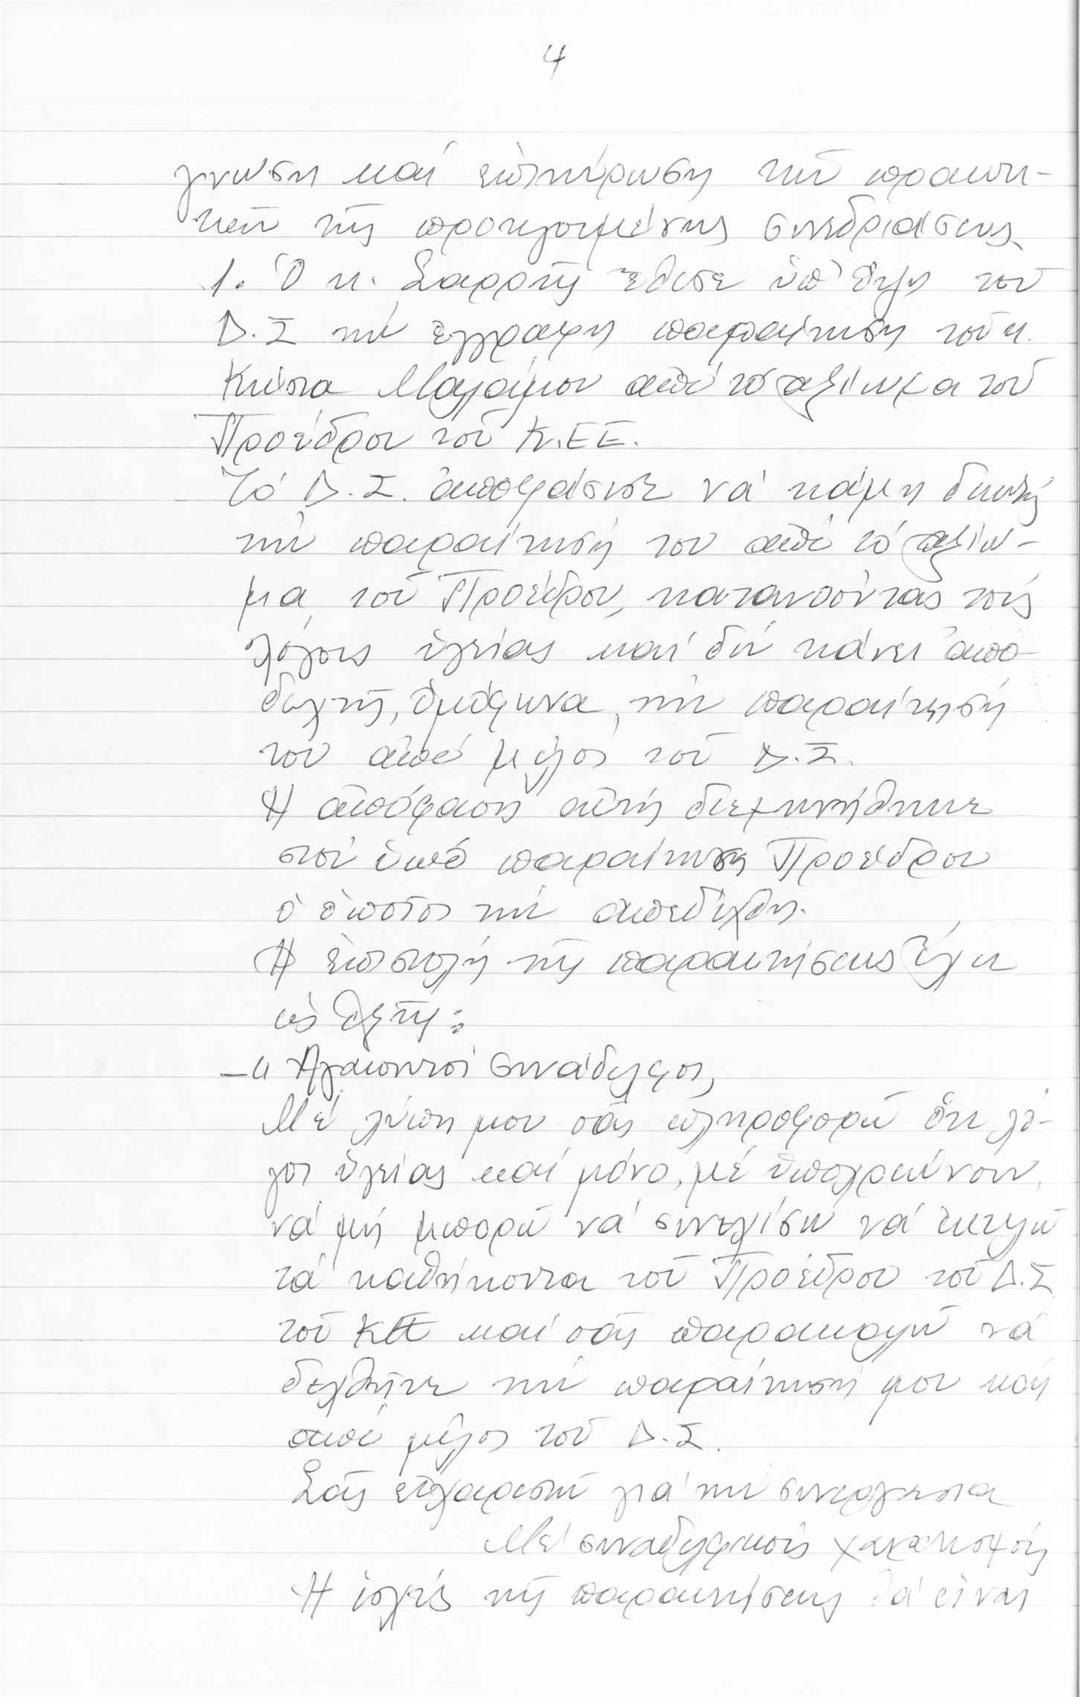 4
γνωση καί ἐπικύρωση τῶν πρακτι-
κῶν τῆς προηγουμένης συνεδριάσεως
1. Ὁ κ. Σαρρῆς ἔθεσε ὑπ' ὄψη τοῦ
Δ.Σ τήν ἔγγραφη παραίτηση τοῦ κ.
Κώστα ἀπό τό ἀξίωμα τοῦ
Προέδρου τοῦ Κ.ΕΕ.
Τό Δ.Σ. ἀποφάσισε νά κάμη δεκτή
τήν παραίτησή του ἀπό τό ἀξίω-
μα τοῦ Προέδρου, κατανοόντας τούς
λόγους ὑγείας καί δέν κάνει ἀπο-
δεκτή, ὁμόφωνα, τήν παραίτησή
του ἀπό μέλος τοῦ Δ.Σ.
Η ἀπόφαση αὐτή διεμηνήθηκε
στόν ὑπό παραίτηση Προέδρου
ὁ ὁποῖος τήν ἀπεδέχθη.
Η ἐπιστολή τῆς παραιτήσεως ἔχει
ὡς ἑξῆς:
–" Αγαπητοί συνάδελφοι,
Μέ λύπη μου σᾶς πληροφορῶ ὅτι λό-
γοι ὑγείας καί μόνο, μέ ὑποχρεώνουν,
νά μή μπορῶ νά συνεχίσω νά ἐκτελῶ
τά καθήκοντα τοῦ Προέδρου τοῦ Δ.Σ
τοῦ ΚΕΕ καί σᾶς παρακαλῶ νά
δεχθῆτε τήν παραίτησή μου καί
ἀπό μέλος τοῦ Δ.Σ.
Σᾶς εὐχαριστῶ γιά τήν συνεργασία
Μέ συναδελφικούς χαιρετισμούς
Η ἰσχύς τῆς παραιτήσεως θά εἶναι